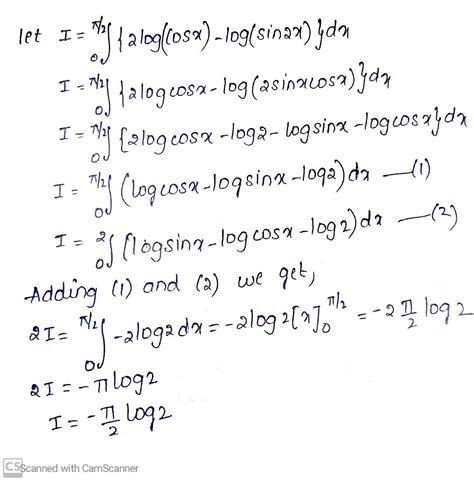 let I = π/2∫0 {2log(cosx) - log(sin2x)}dx
I = π/2∫0 {2logcosx - log(2sinxcosx)}dx
I = π/2∫0 {2logcosx - log2 - logsinx - logcosx}dx
I = π/2∫0 (logcosx - logsinx - log2)dx —(1)
I = 2∫0 (logsinx - logcosx - log2)dx —(2)
Adding (1) and (2) we get,
2I = π/2∫0 -2log2dx = -2log2[x]0^π/2 = -2 π/2 log2
2I = -πlog2
I = -π/2 log2
CS Scanned with CamScanner